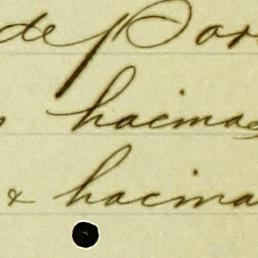 de Por
hacinas
& hacina